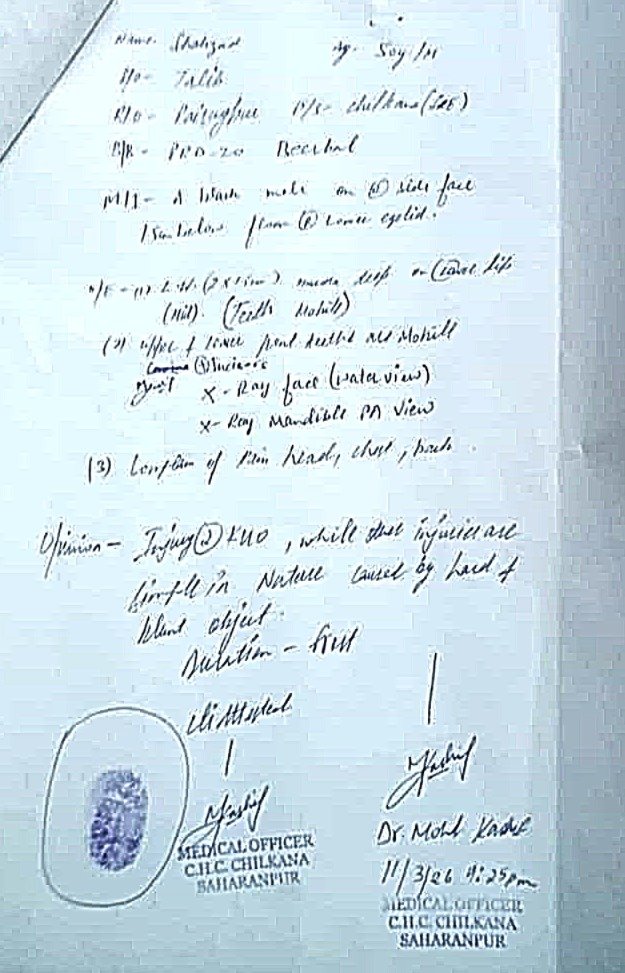 Name- Shahzad Ag- 50y/M
S/O- Talib
R/O- P/S- Chilkana (SRE)
B/B- PRD-20 Beerbal
M/I- A Wart mole on side face
1cm below from Lower eyelid.
(1) L.W. (2 x 1cm) deep on Lower lip
(Teeth Mobile)
(2) upper & lower front teeth are Mobile
X-Ray face (water view)
X-Ray Mandible PA View
(3) Complain of Pain head, chest, back.
Opinion- Injury (2) KUO, while other injuries are
Simple in Nature caused by hard &
blunt object.
Duration - fresh
LTI Attested
MEDICAL OFFICER
C.H.C. CHILKANA
SAHARANPUR
Dr. Mohd Kashif
11/3/26 4:25pm
MEDICAL OFFICER
C.H.C. CHILKANA
SAHARANPUR